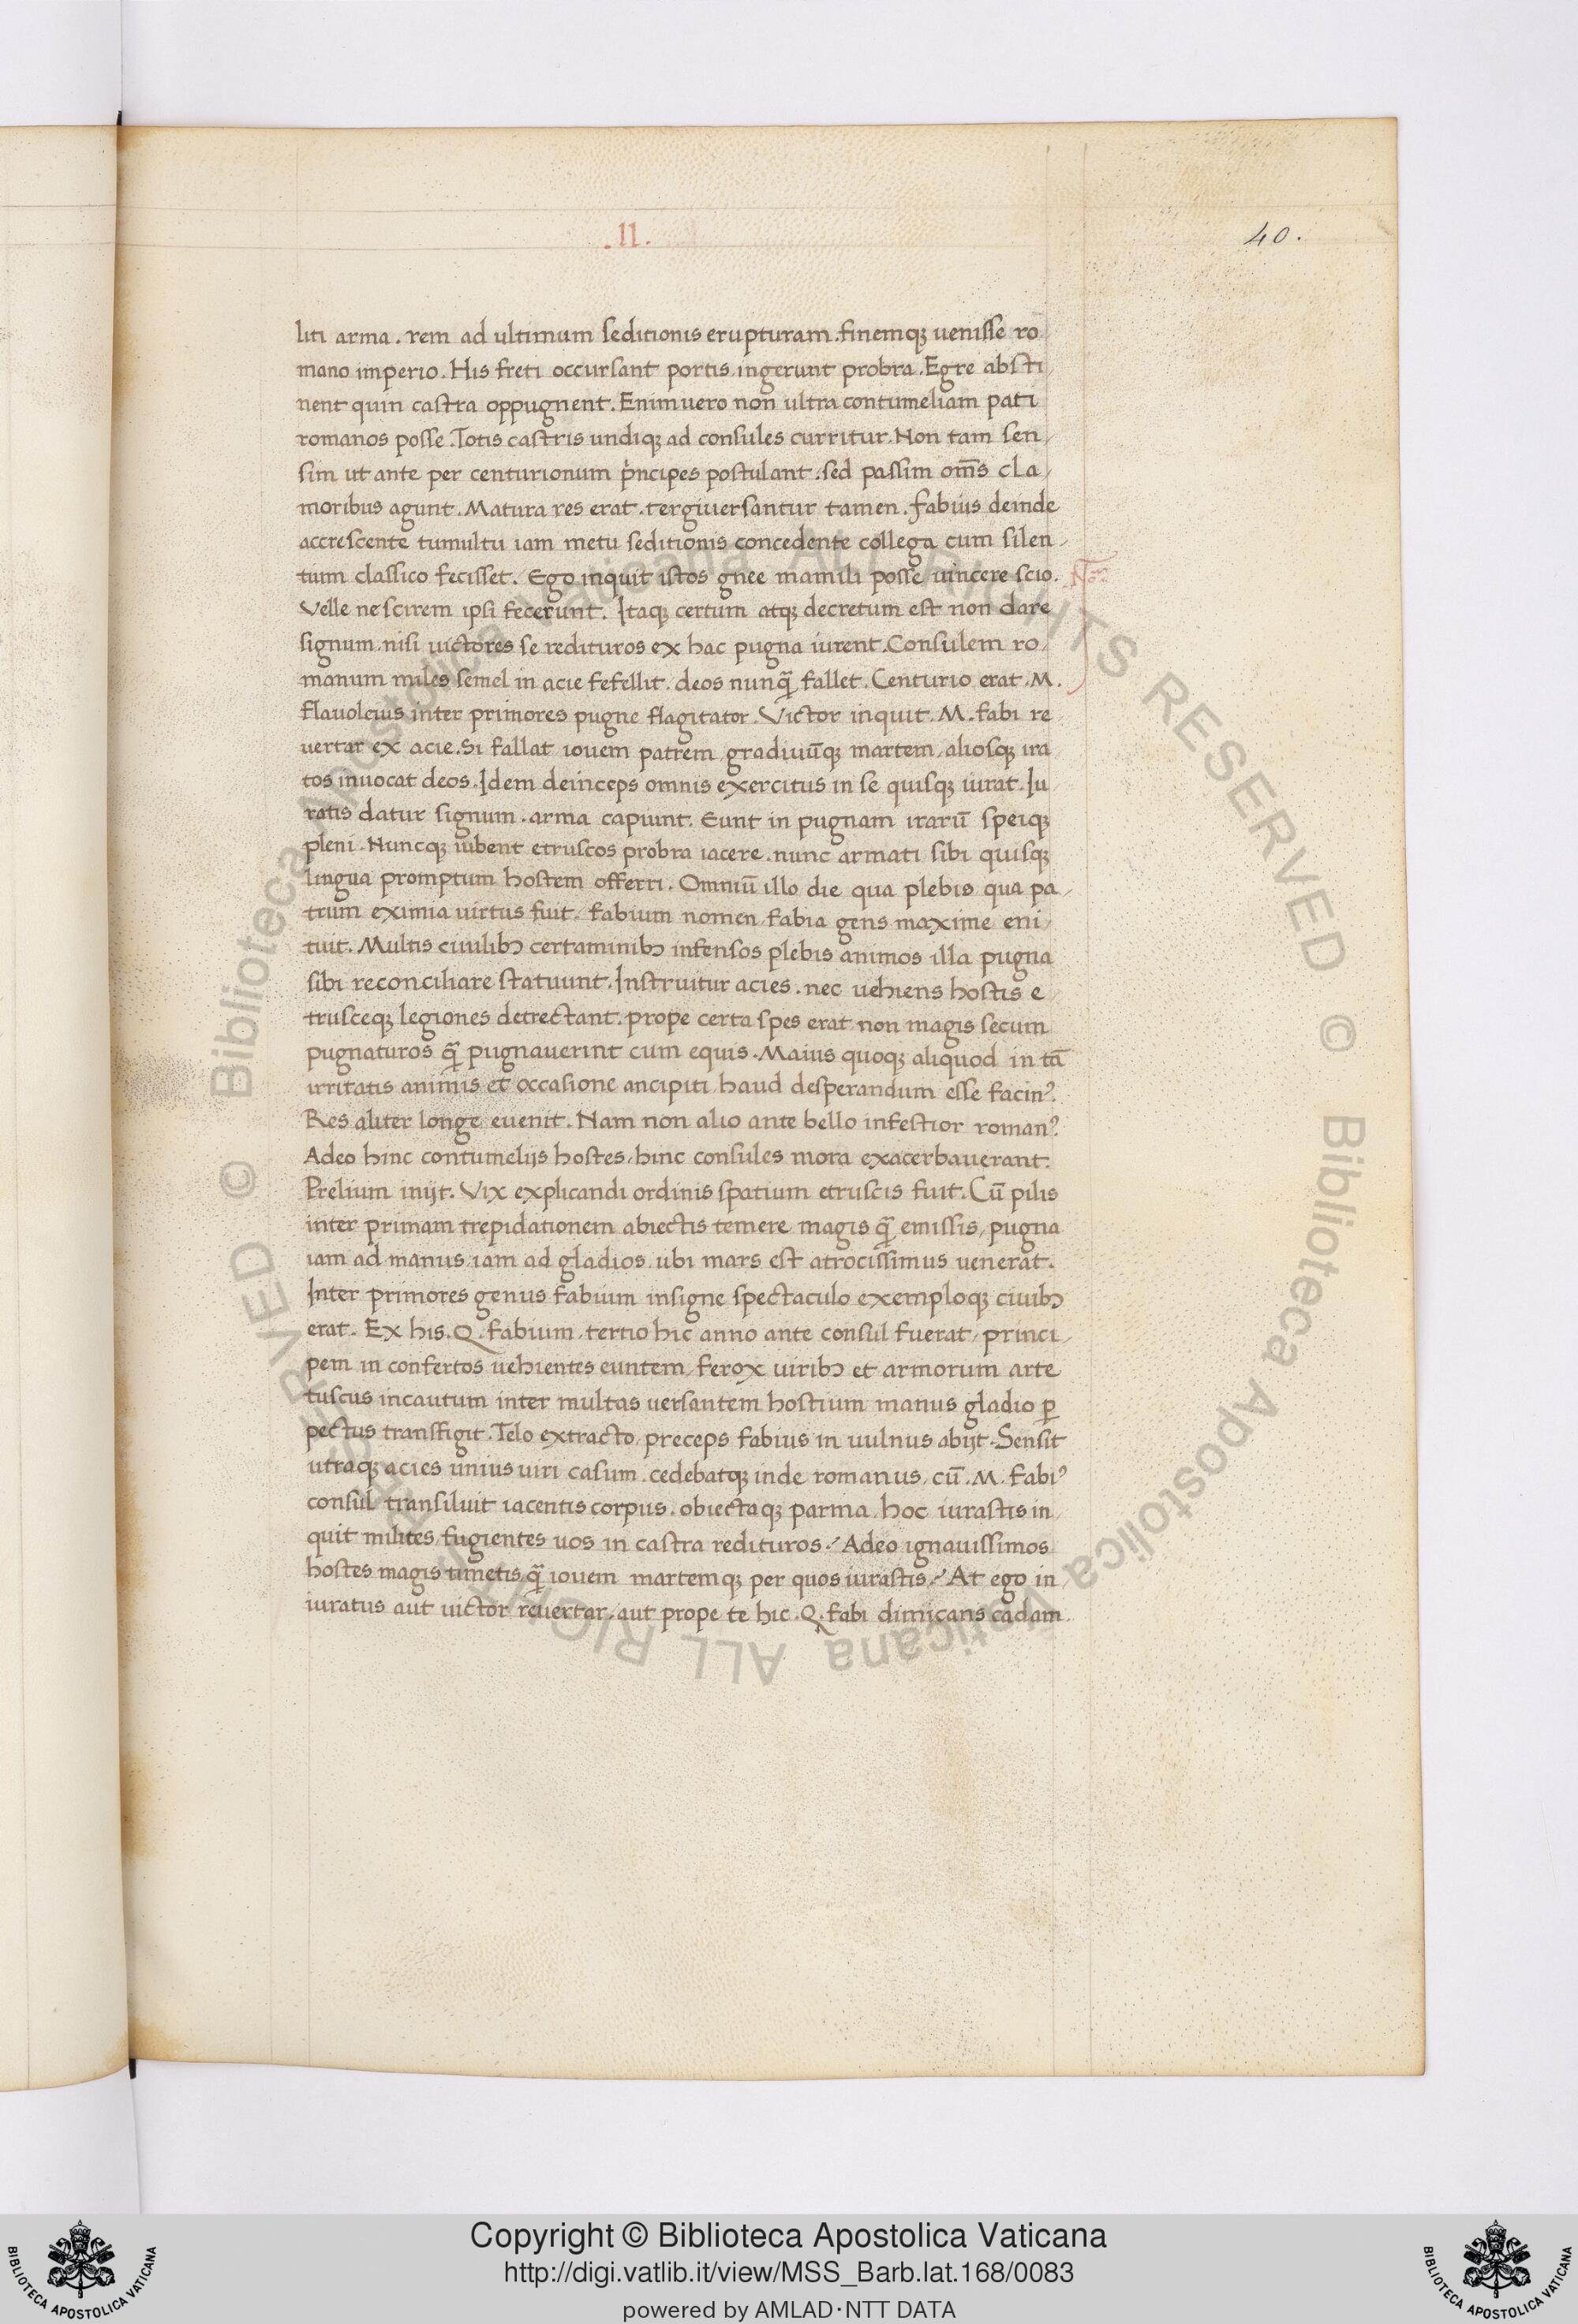 .II.
40.
liti arma. rem ad ultimum seditionis erupturam. finemqꝫ uenisse ro
mano imperio. His freti occursant portis ingerunt probra. Egre absti
nent quin castra oppugnent. Enimuero non ultra contumeliam pati
romanos posse. Totis castris undiqꝫ ad consules curritur. Non tam sen
sim ut ante per centurionum pͥncipes postulant. sed passim om̄s cla
moribus agunt. Matura res erat. tergiuersantur tamen. fabius deinde
accrescente tumultu iam metu seditionis concedente collega cum silen
tum classico fecisset. Ego inquit istos gnee mamili posse uincere scio.
Velle ne scirem ipsi fecerunt. Itaqꝫ certum atqꝫ decretum est non dare
signum nisi uictores se redituros ex hac pugna iurent. Consulem ro
manum miles semel in acie fefellit. deos nunq̄ fallet. Centurio erat. M.
flauoleius inter primores pugne flagitator. Victor inquit. M. fabi re
uertar ex acie. Si fallat iouem patrem gradiuūqꝫ martem, aliosqꝫ ira
tos inuocat deos. Idem deinceps omnis exercitus in se quisqꝫ iurat. Iu
ratis datur signum. arma capiunt. Eunt in pugnam irarū speiqꝫ
pleni. Nuncqꝫ iubent etruscos probra iacere. nunc armati sibi quisqꝫ
lingua promptum hostem offerri. Omniū illo die qua plebis qua pa
trum eximia uirtus fuit. fabium nomen fabia gens maxime eni
tuit. Multis ciuilibꝫ certaminibꝫ infensos plebis animos illa pugna
sibi reconciliare statuunt. Instruitur acies. nec uehiens hostis e
trusceqꝫ legiones detrectant. prope certa spes erat non magis secum
pugnaturos q̄ pugnauerint cum equis. Maius quoqꝫ aliquod in tā
irritatis animis et occasione ancipiti haud desperandum esse facinꝰ.
Res aliter longe euenit. Nam non alio ante bello infestior romanꝰ.
Adeo hinc contumelijs hostes, hinc consules mora exacerbauerant.
Prelium inijt. Vix explicandi ordinis spatium etruscis fuit. Cū pilis
inter primam trepidationem abiectis temere magis q̄ emissis, pugna
iam ad manus iam ad gladios ubi mars est atrocissimus uenerat.
Inter primores genus fabium insigne spectaculo exemploqꝫ ciuibꝫ
erat. Ex his. Q. fabium, tertio hic anno ante consul fuerat, princi
pem in confertos uehientes euntem, ferox uiribꝫ et armorum arte
tuscus incautum inter multas uersantem hostium manus gladio ꝑ
pectus transfigit. Telo extracto, preceps fabius in uulnus abijt. Sensit
utraqꝫ acies unius uiri casum. cedebatqꝫ inde romanus, cū. M. fabiꝰ
consul transiluit iacentis corpus. obiectaqꝫ parma, hoc iurastis in
quit milites, fugientes uos in castra redituros? Adeo ignauissimos
hostes magis timetis, q̄ iouem martemqꝫ per quos iurastis? At ego in
iuratus aut uictor reuertar, aut prope te hic. Q. fabi dimicans cadam
Copyright © Biblioteca Apostolica Vaticana
http://digi.vatlib.it/view/MSS_Barb.lat.168/0083
powered by AMLAD·NTT DATA